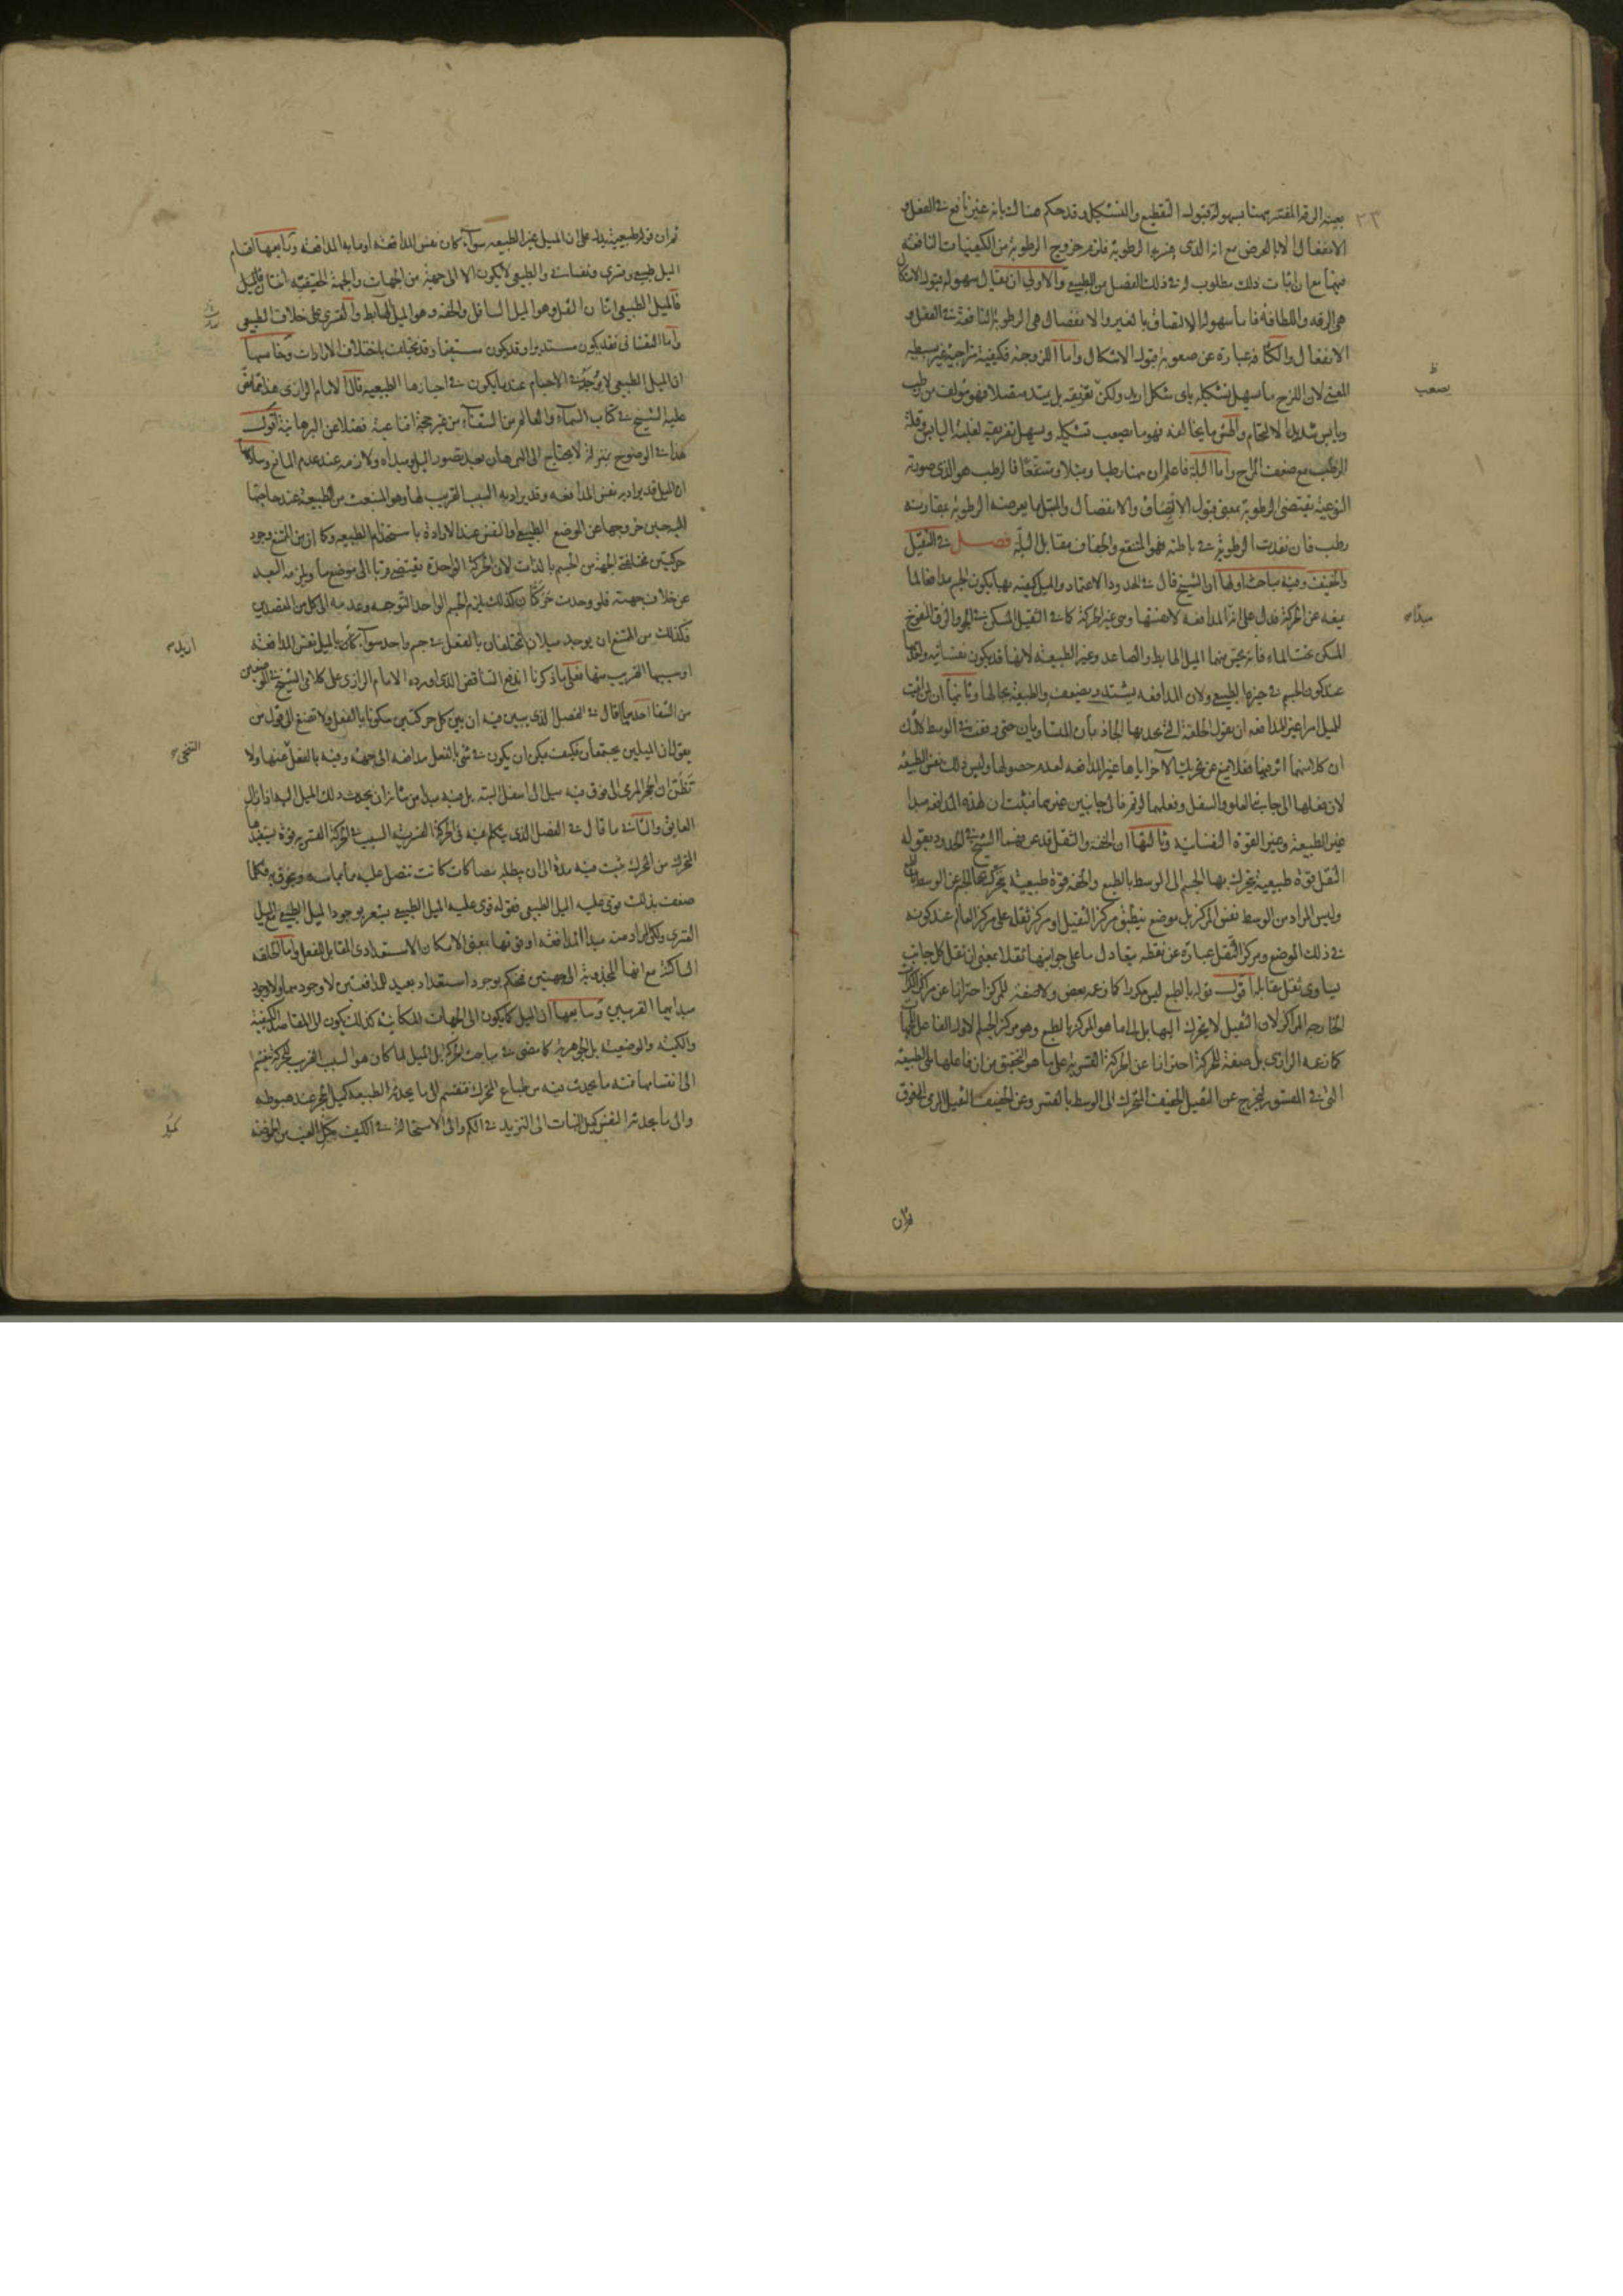 ٢٣
بعينه الرقة المفسر بهنا بسهولة قبول التقطيع والتشكيل وقد حكم هناك بانه غير نافع في الفعل و
الانفعال الا بالعرض مع انه الذى فسر بها الرطوبة فلزم خروج الرطوبة من الكيفيات النافعة
فيهما مع ان اثبات ذلك مطلوب له في ذلك الفصل من الطبيعي والاولى ان يقال سهولة قبول الاشكال
هى الرقه واللطافه فاما سهوله الالتصاق بالغير والانفصال هى الرطوبة النافعة في الفعل و
الانفعال والكثافه عبارة عن صعوبة قبول الاشكال واما اللزوجة فكيفية مزاجية غير بسيطه
المعنى لان اللزج ما سهل تشكيله باى شكل اريد ولكن تفريقه بل يمتد متصلا فهو مؤلف من رطب
ويابس شديدا الالتحام والهش ما يخالفه فهو ما يصعب تشكيله ويسهل تفريقه لغلبة اليابس وقلة
الرطب مع ضعف المزاج واما البلة فاعلم ان هنا رطبا ومبتلا ومنتقعا فالرطب هو الذى صورته
النوعية يقتضى الرطوبة بمعنى قبول الالتصاق والانفصال والمبتل ما يعرضه الرطوبة بمقارنة
رطب فان نفذت الرطوبة في باطنه فهو المنتقع والجفاف مقابل البلة فصل في الثقيل
والخفيف وفيه مباحث اولها ان الشيخ قال في الحدود الاعتماد والميل كيفيه بها يكون الجسم مدافعا لما
يمنعه عن الحركة فدل على انه المدافعه لا نفسها وهى غير الحركة كما في الثقيل المسكن في الجو والزق المنفوخ
المسكن تحت الماء فانه يحس منهما الميل الهابط والصاعد وغير الطبيعة لانها قد يكون نفسانيه ولفقدها
عند كون الجسم في حيزه الطبيعي ولان المدافعه يشتد ويضعف والطبيعة بحالها وثانيها ان من اثبت
للميل امرا غير المدافعه ان يقول الحلقة التى يجذبها الجاذبان المتساويان حتى وقفت في الوسط لا شك
ان كلا منهما اثر فيها فعلا يمنع عن تحريك الآخر اياها غير المدافعه لعدم حصولها وليس ذلك نفس الطبيعه
لان فعلها الى جانب العلو والسفل وفعلهما لو تم فالى جانبين غيرهما فثبت ان لهذه المدافعه مبدا
غير الطبيعة وغير القوة النفسانية وثالثها ان الخفه والثقل قد عرفهما الشيخ في الحدود بقوله
الثقل قوة طبيعية يتحرك بها الجسم الى الوسط بالطبع والخفه قوة طبيعية يتحرك بها الجسم عن الوسط بالطبع
وليس المراد من الوسط نفس المركز بل موضع ينطبق مركز الثقيل او مركز ثقله على مركز العالم عند كونه
في ذلك الموضع ومركز الثقل عبارة عن نقطه يتعادل ما على جوانبها ثقلا بمعنى ان ثقل كل جانب
يساوى ثقل مقابله اقول قوله بالطبع ليس مكررا كما زعمه بعض ولا صفة للمركز احترازا عن مراكز الافلاك
الخارجه المراكز لان الثقيل لا يتحرك اليها بل الى ما هو المركز بالطبع وهو مركز الجسم الاول الفاعل للجهات
كما زعمه الرازى بل صفة للحركة احترازا عن الحركة القسرية على ما هو التحقيق من ان فاعلها هى الطبيعة
التى في المقسور ليخرج عن الثقيل الخفيف المتحرك الى الوسط بالقسر وعن الخفيف الثقيل المرمى الى فوق
ثم ان
يصعب
مبداء
ثم ان قوله طبيعية يدل على ان الميل غير الطبيعه سواء كان نفس المدافعه او ما به المدافعه ورابعها اقسام
الميل طبيعي وقسرى ونفسانى والطبيعى لا يكون الا الى جهة من الجهات والجهة الحقيقيه اثنتان فالميل
فالميل الطبيعى اثنان الثقل وهو الميل السافل والخفه وهو الميل الهابط والقسرى على خلاف الطبيعى
واما النفسانى فقد يكون مستديرا وقد يكون مستقيما وقد يختلف باختلاف الارادات وخامسها
ان الميل الطبيعى لا يوجد في الاجسام عند ما يكون في احيازها الطبيعيه قال الامام الرازى هذا مما نص
عليه الشيخ في كتاب السماء والعالم من الشفاء من غير حجة اقناعية فضلا عن البرهانية اقول
هذا في الوضوح بمنزلة لا يحتاج الى البرهان بعد تصور الميل ومبداه ولازمه عند عدم المانع وسادسها
ان الميل قد يراد به نفس المدافعه وقد يراد به السبب القريب لها وهو المنبعث من الطبيعة عند حاجتها
اليه حين خروجها عن الموضع الطبيعي او النفس عند الارادة باستخدام الطبيعه وكما ان من الممتنع وجود
حركتين مختلفتى الجهة من الجسم بالذات لان الحركة الواحدة يقتضى قربا الى موضع ما ويلزمه البعد
عن خلاف جهته فلو وجدت حركتان كذلك لزم لجسم الواحد التوجه وعدمه الى كل من المقصدين
فكذلك من الممتنع ان يوجد ميلان مختلفان بالفعل في جسم واحد سواء كان بالميل نفس المدافعه
او سببها القريب منها فعلى ما ذكرنا اندفع التناقض الذى اورده الامام الرازى على كلامى الشيخ في الموضعين
من الشفا احدهما قال في الفصل الذى يبين فيه ان بين كل حركتين سكونا بالفعل ولا تصغ الى قول من
يقول ان الميلين يجتمعان فكيف يمكن ان يكون في شئ بالفعل مدافعه الى جهة وفيه بالفعل عنها ولا
تظن ان الحجر المرمى الى فوق فيه ميل الى اسفل البته بل فيه مبدا من شانه ان يحدث ذلك الميل اليه اذا زال
العايق والثانى ما قال في الفصل الذى يتكلم فيه فى الحركة القسرية السبب في الحركة القسريه قوة يستفيدها
المتحرك من المحرك يثبت فيه مدة الى ان يبطله مصاكات كانت تتصل عليه مما يماسه ويخرق به فكلما
ضعف بذلك قوى عليه الميل الطبيعى فقوله قوى عليه الميل الطبيعى يشعر بوجود الميل الطبيعي مع الميل
القسرى ولكن المراد منه مبدا المدافعه او قوتها بمعنى الامكان الاستعدادى المقابل للفعل واما الحلقه
الساكنة مع انها المجذوبة الى جهتين فنحكم بوجود استعداد بعيد للمدافعتين لا وجودهما ولا وجود
مبدايهما القريبين وسابعها ان الميل كما يكون الى الجهات المكانيه كذلك يكون الى المقاصد الكيفية
والكمية والوضعيه بل الجوهرية كما مضى في مباحث الحركة بل الميل لما كان هو السبب القريب للحركة فيقسم
الى انقسامها فمنه ما يحدث فيه من طباع المتحرك فتنقسم الى ما يحدثه الطبيعه كميل الحجر عند هبوطه
والى ما يحدثه النفس كميل النبات الى التزيد في الكم والى الاستحالة في الكيف كميل العنب من الحموضة
اريد
التنحى